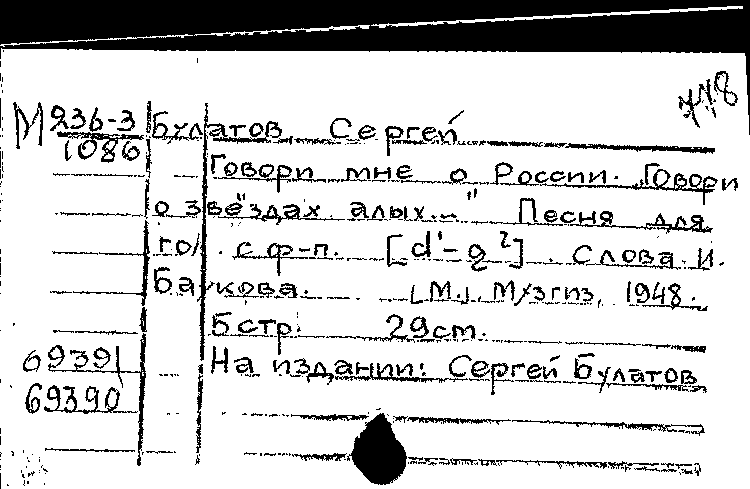 778
М 236-3 Булатов, Сергей
1086
Говори мне о России. „Говори
о звёздах алых..." Песня для
гол. с ф-п. [d¹-g²]. Слова И.
Баукова. [М.], Музгиз, 1948.
5 стр. 29см.
69391 На издании: Сергей Булатов
69390